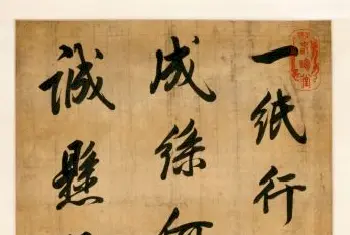 一紙行
成絲何
誠懸